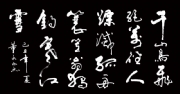 千山鳥飛
絕萬徑人
蹤滅孤舟
蓑笠翁獨
釣寒江
雪